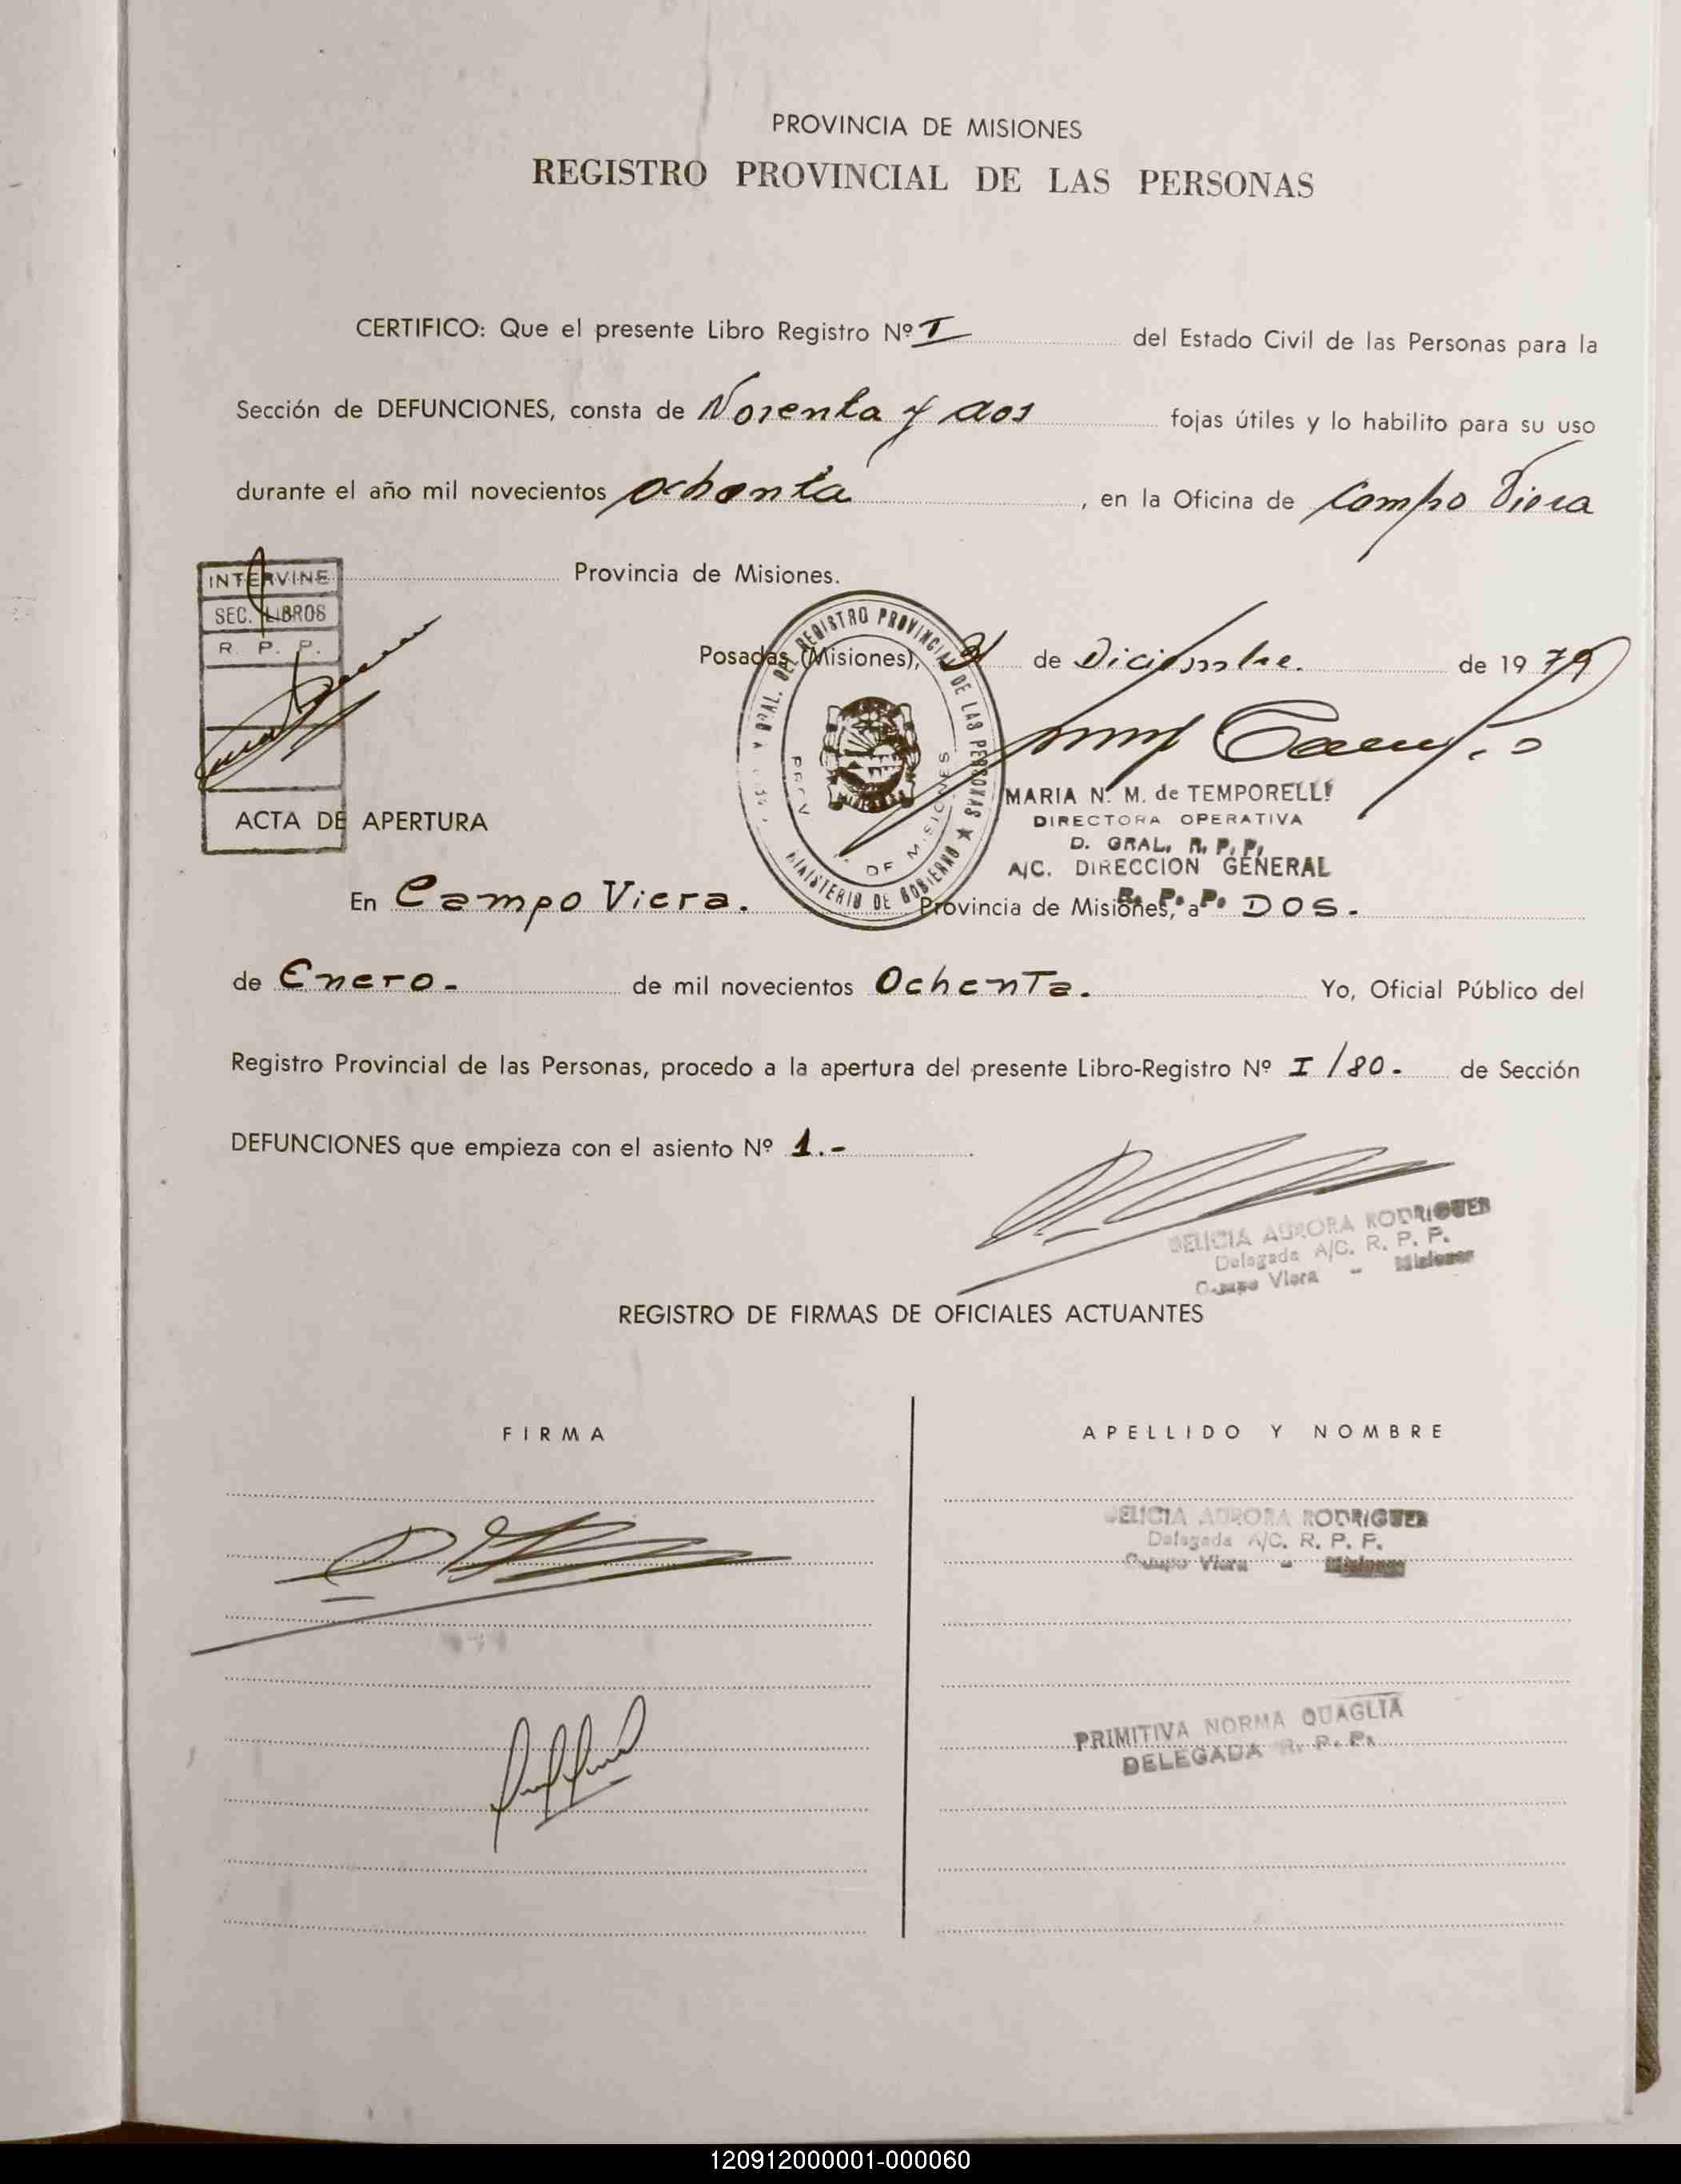 PROVINCIA DE MISIONES
REGISTRO PROVINCIAL DE LAS PERSONAS
CERTIFICO: Que el presente Libro Registro Nº I del Estado Civil de las Personas para la
Sección de DEFUNCIONES, consta de Noventa y dos fojas útiles y lo habilito para su uso
durante el año mil novecientos ochenta, en la Oficina de Campo Viera
Provincia de Misiones.
INTERVINE
SEC. LIBROS
R. P. P.
Posadas (Misiones), de Diciembre. de 1979
DEL REGISTRO PROVINCIAL DE LAS PERSONAS ★ MINISTERIO DE GOBIERNO
PROV. DE MISIONES
MISIONES
MARIA N. M. de TEMPORELLI
DIRECTORA OPERATIVA
D. GRAL. R. P. P.
A/C. DIRECCION GENERAL
R. P. P.
ACTA DE APERTURA
En Campo Viera. Provincia de Misiones, a DOS.
de Enero.- de mil novecientos OchenTa. Yo, Oficial Público del
Registro Provincial de las Personas, procedo a la apertura del presente Libro-Registro Nº I/80.- de Sección
DEFUNCIONES que empieza con el asiento Nº 1.-
DELICIA AURORA RODRIGUEZ
Delegada A/C. R. P. P.
Campo Viera - Misiones
REGISTRO DE FIRMAS DE OFICIALES ACTUANTES
FIRMA
APELLIDO Y NOMBRE
DELICIA AURORA RODRIGUEZ
Delegada A/C. R. P. P.
Campo Viera - Misiones
PRIMITIVA NORMA QUAGLIA
DELEGADA R. P. P.
120912000001-000060